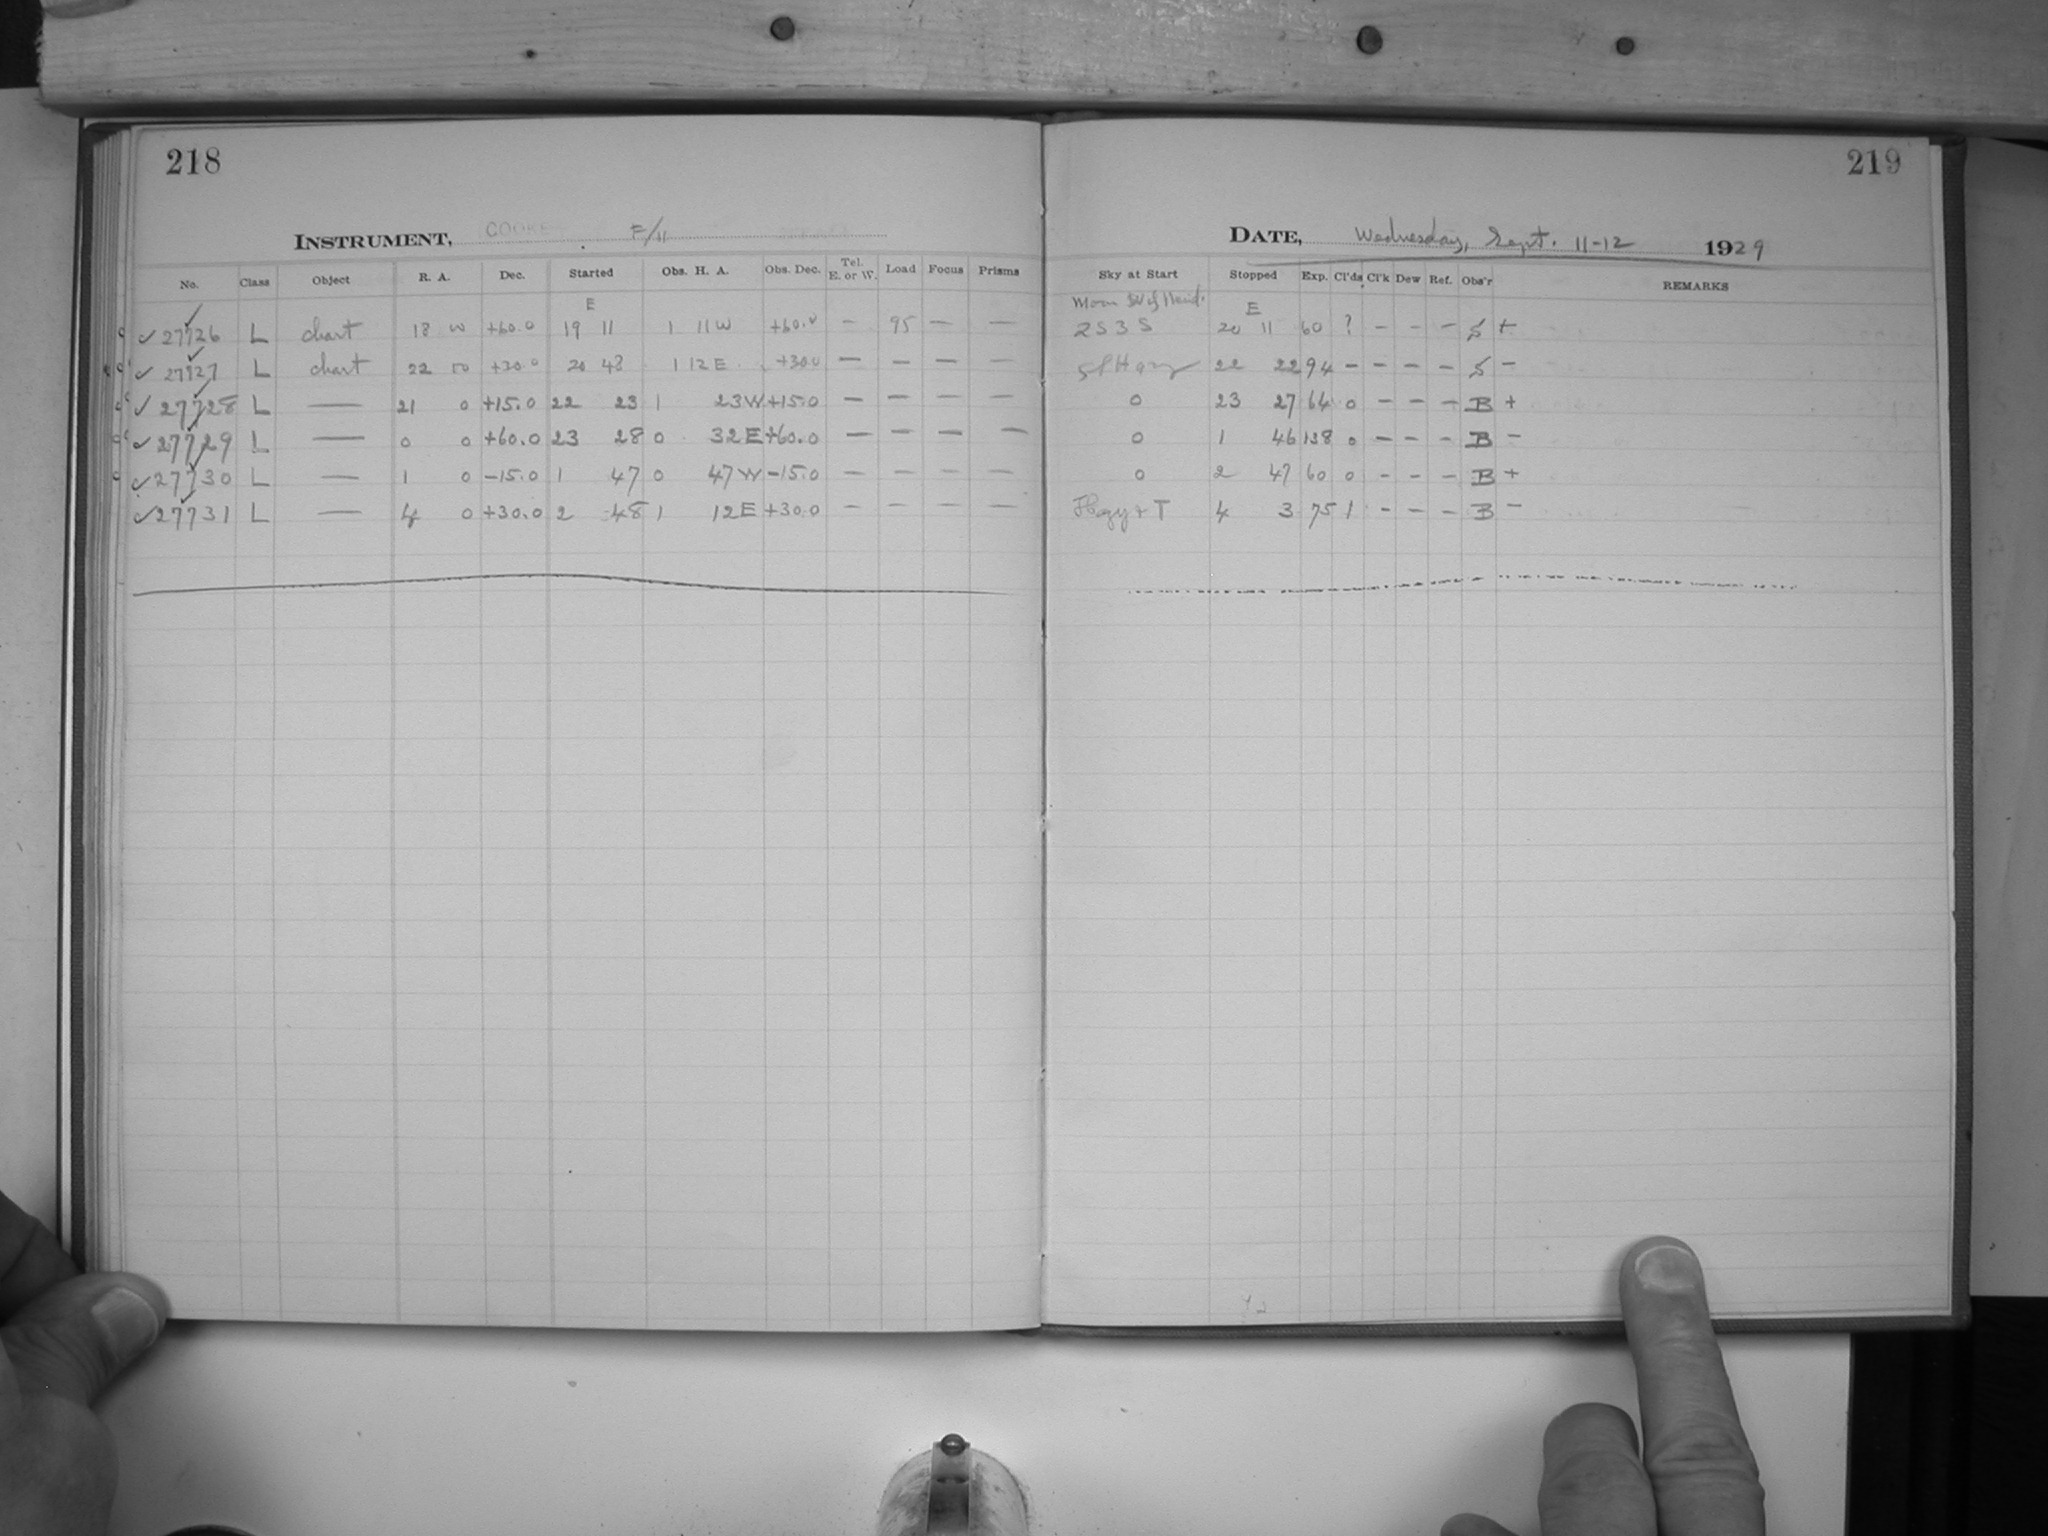 218
INSTRUMENT, COOKE F/11
No. Class Object R. A. Dec. Started Obs. H. A. Obs. Dec. Tel. E. or W. Load Focus Prisms
E
27726 L chart 18 +60.0 19 11 1 11 W +60.0 - 95 - -
27727 L chart 22 +30.0 20 48 1 12 E +30.0 - - - -
27728 L — 21 0 +15.0 22 23 1 23 W +15.0 - - - -
27729 L — 0 0 +60.0 23 28 0 32 E +60.0 - - - -
27730 L — 1 0 -15.0 1 47 0 47 W -15.0 - - - -
27731 L — 4 0 +30.0 2 48 1 12 E +30.0 - - - -
219
DATE, Wednesday, Sept. 11-12 1929
Sky at Start Stopped Exp. Cl'ds Cl'k Dew Ref. Obs'r REMARKS
Moon E
2S3S 20 11 60 ? - - - S +
22 22 94 - - - - S -
0 23 27 64 0 - - - B +
0 1 46 138 0 - - - B -
0 2 47 60 0 - - - B +
Hazy + T 4 3 75 1 - - - B -